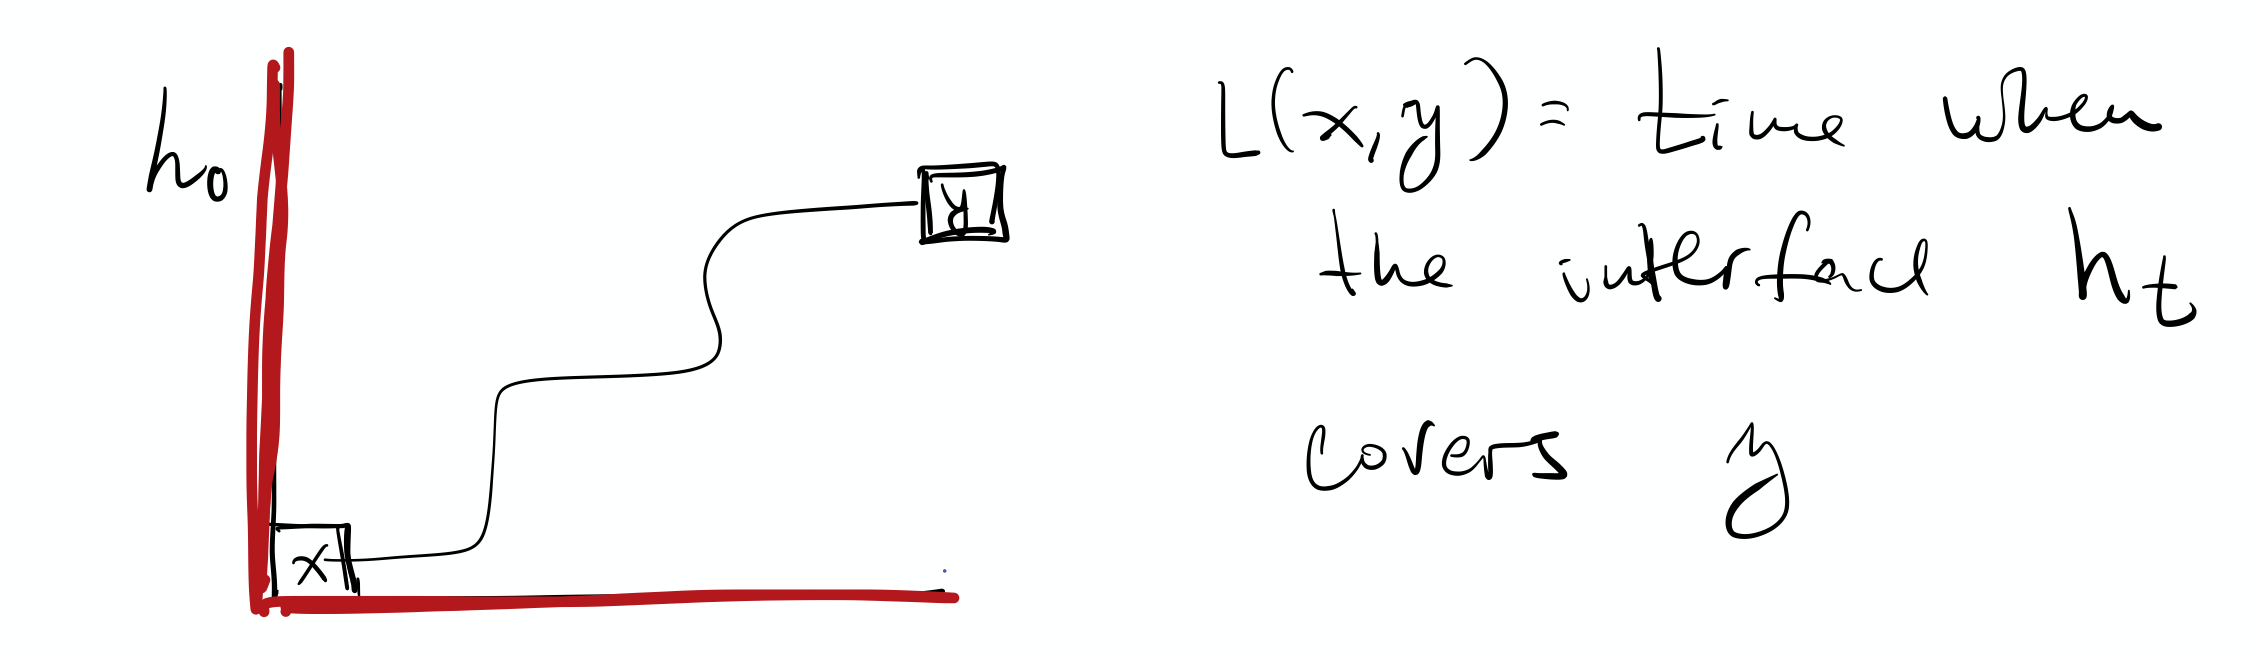 h₀
x
y
L(x,y) = time when
the interface hₜ
covers y